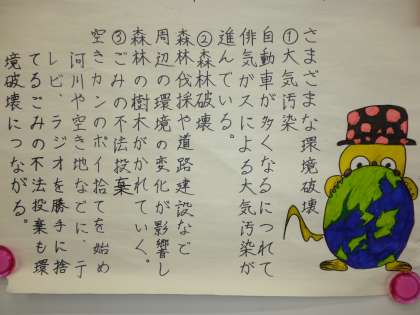 さまざまな環境破壊
①大気汚染
自動車が多くなるにつれて
俳気がスによる大気汚染が
進んでいる。
②森林破壊
森林伐採や道路建設など
周辺の環境の変化が影響し
森林の樹木がかれていく。
③ごみの不法投棄
空きカンのポイ捨てを始め
河川や空き地などに、テ
レビ、ラジオを勝手に捨
てるごみの不法投棄も環
境破壊につながる。